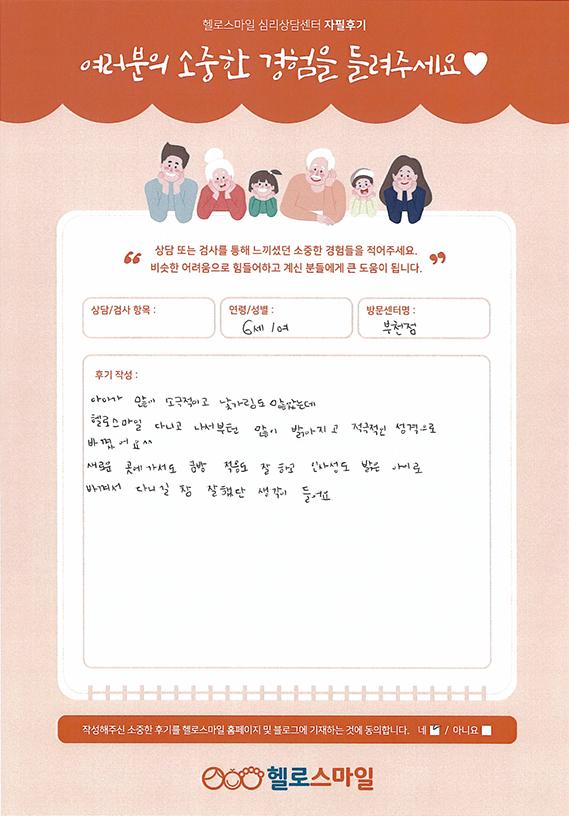 헬로스마일 심리상담센터 자필후기
여러분의 소중한 경험을 들려주세요♥
❝ 상담 또는 검사를 통해 느끼셨던 소중한 경험들을 적어주세요. ❞
비슷한 어려움으로 힘들어하고 계신 분들에게 큰 도움이 됩니다.
상담/검사 항목 :
연령/성별 :
6세 / 여
방문센터명 :
부천점
후기 작성 :
아이가 많이 소극적이고 낯가림도 많았는데
헬로스마일 다니고 나서부턴 많이 밝아지고 적극적인 성격으로
바꼈어요^^
새로운 곳에가서도 금방 적응도 잘 하고 인사성도 밝은 아이로
바껴서 다니길 참 잘했단 생각이 들어요
작성해주신 소중한 후기를 헬로스마일 홈페이지 및 블로그에 기재하는 것에 동의합니다. 네 ☑ / 아니요 □
헬로스마일